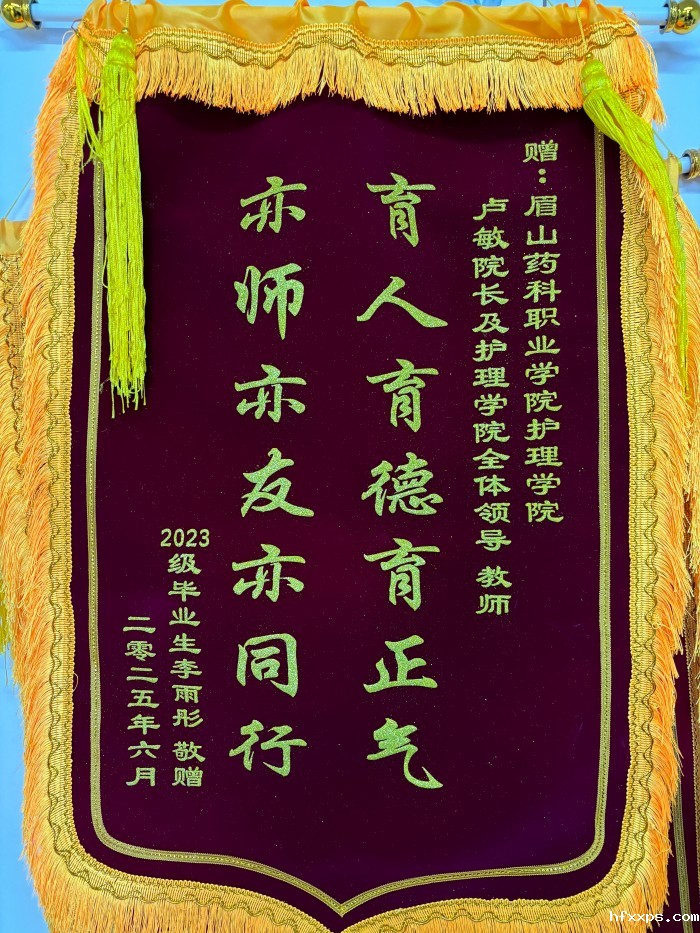 赠：眉山药科职业学院护理学院
卢敏院长及护理学院全体领导 教师
育人育德育正气
亦师亦友亦同行
2023级毕业生李雨彤 敬赠
二零二五年六月
hfxxps.com